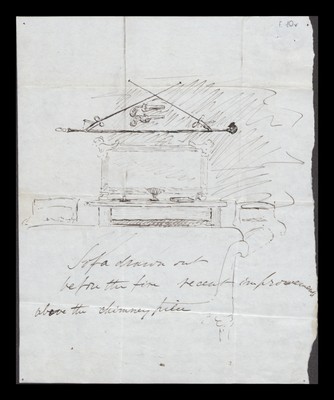 Sofa drawn out
before the fire recent improvements
above the chimney piece